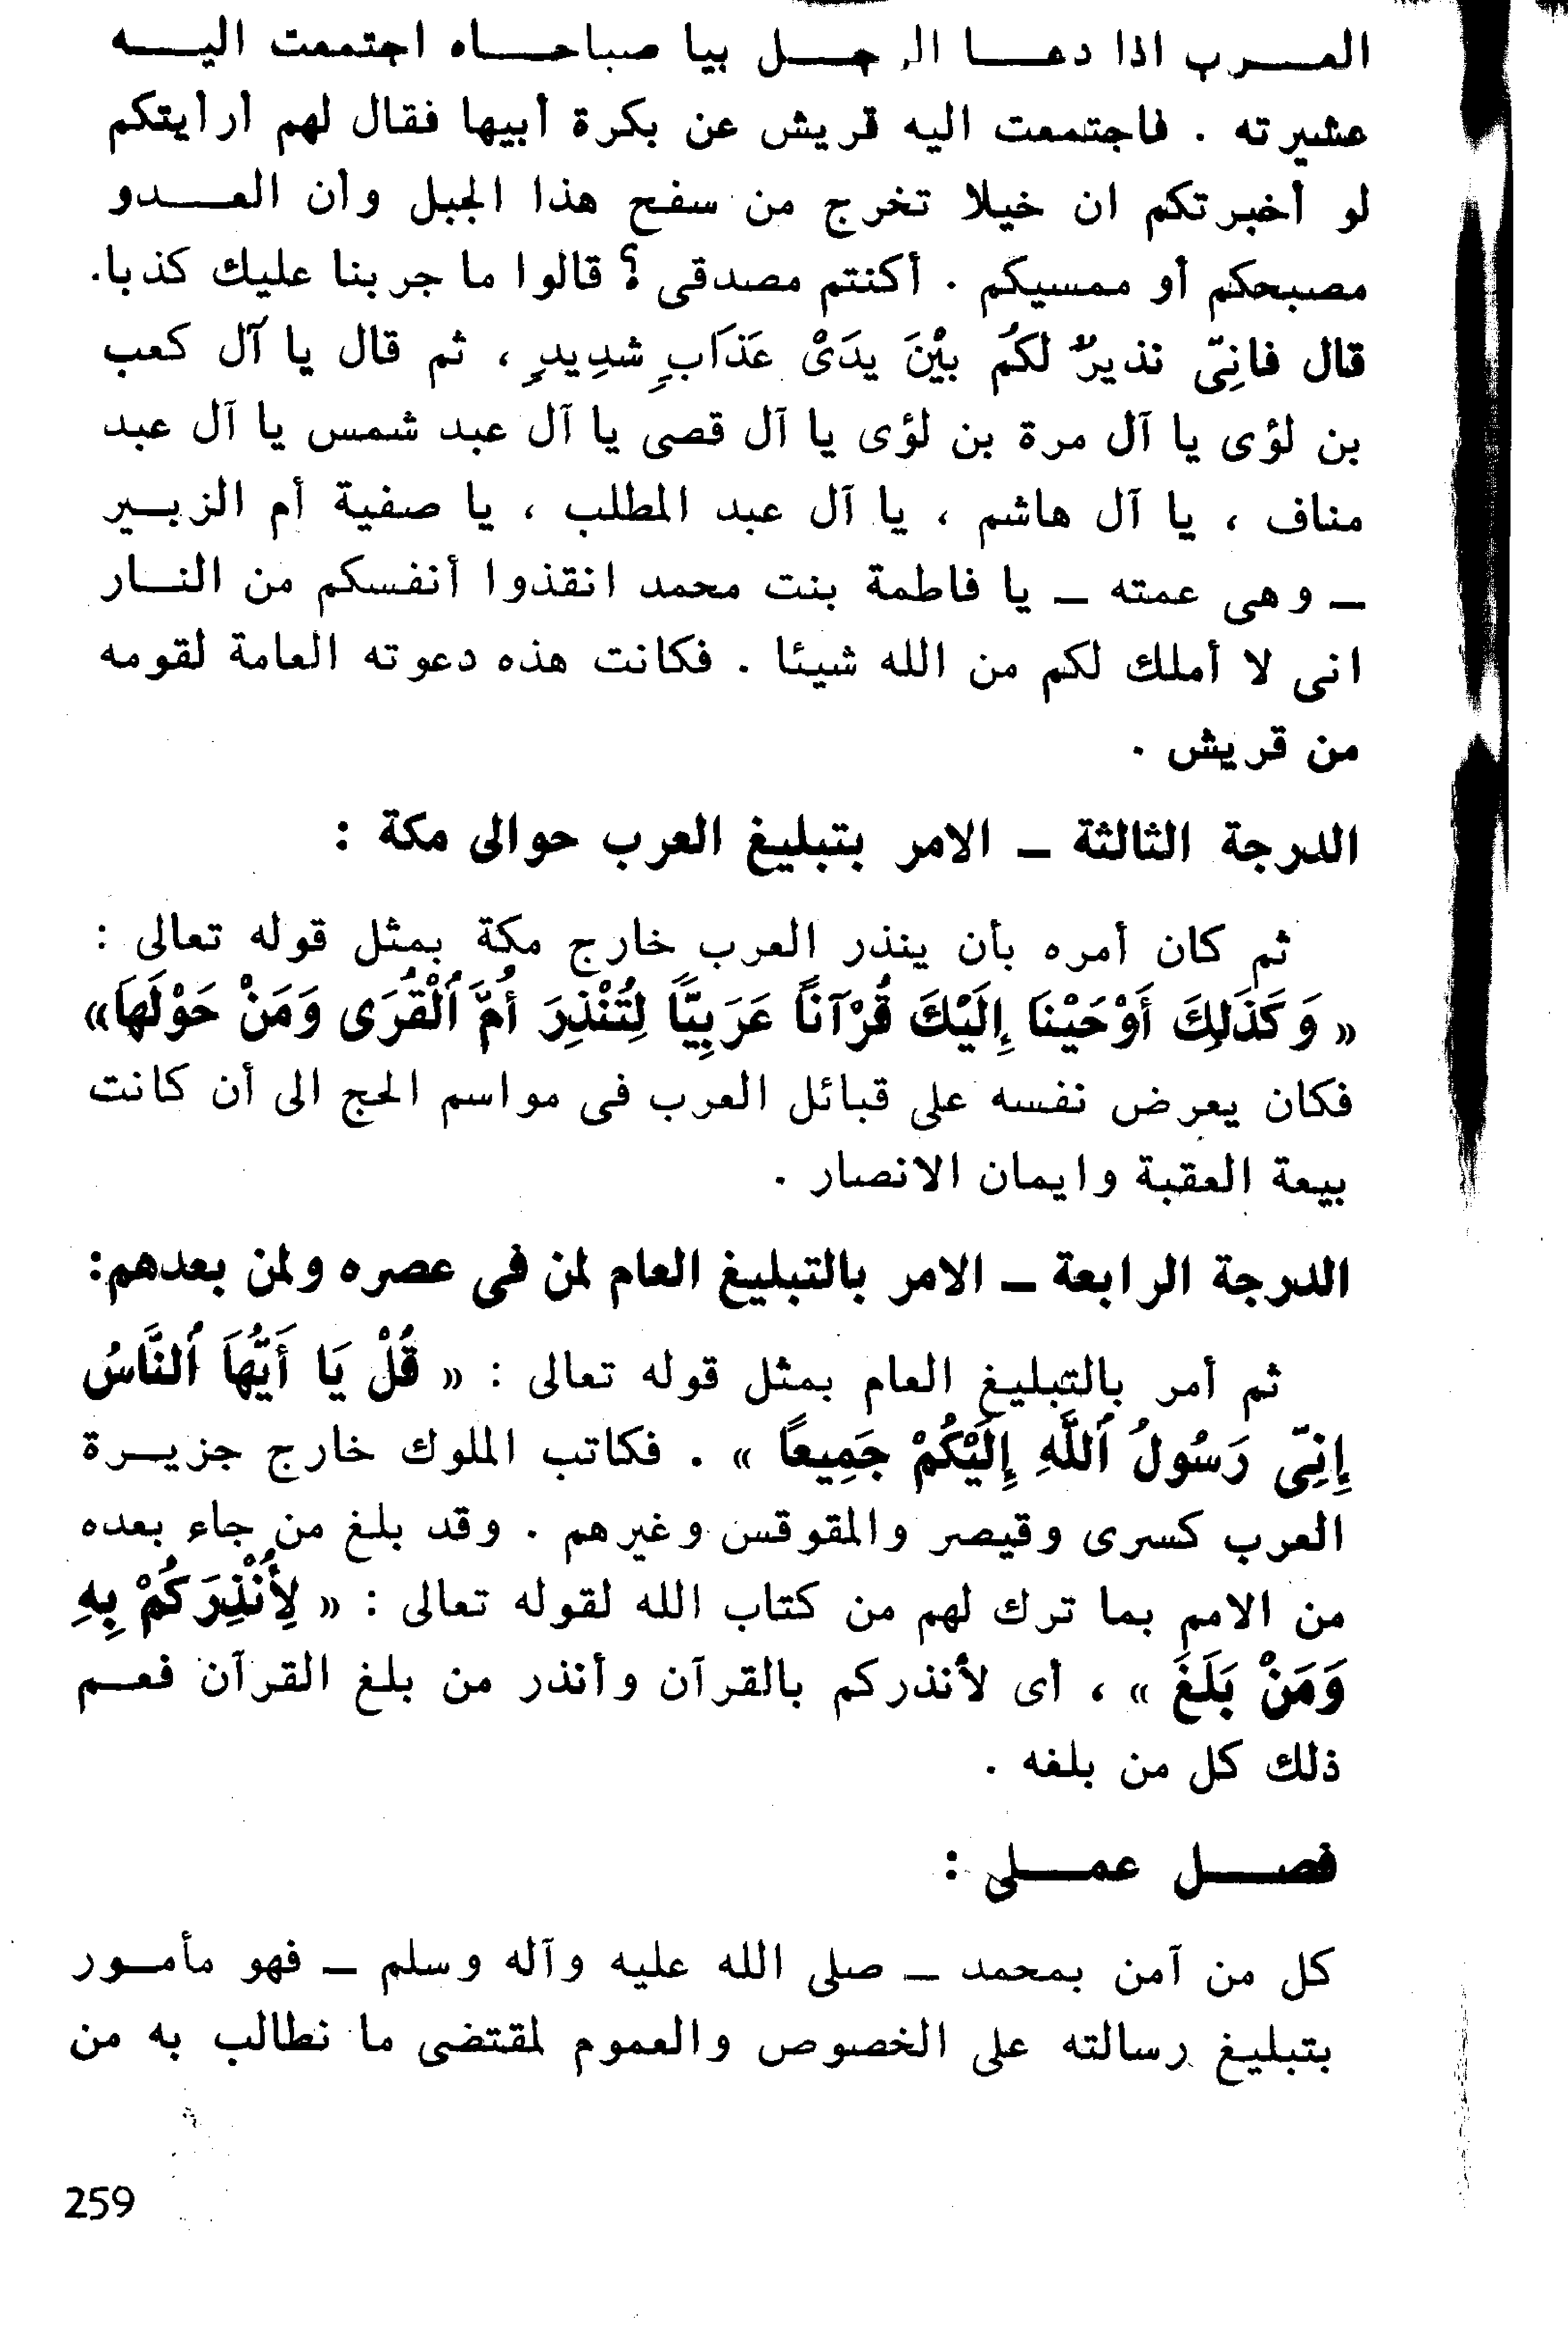 العـــرب اذا دعـــا الرجـــل بيا صباحـــاه اجتمعت اليـــه
عشيرته . فاجتمعت اليه قريش عن بكرة أبيها فقال لهم أرأيتكم
لو أخبرتكم ان خيلا تخرج من سفح هذا الجبل وأن العـــدو
مصبحكم أو ممسيكم . أكنتم مصدقى ؟ قالوا ما جربنا عليك كذبا.
قال فانِّى نذيرٌ لكُم بيْنَ يدَىْ عَذَابٍ شدِيدٍ ، ثم قال يا آل كعب
بن لؤى يا آل مرة بن لؤى يا آل قصى يا آل عبد شمس يا آل عبد
مناف ، يا آل هاشم ، يا آل عبد المطلب ، يا صفية أم الزبـــير
ـ وهى عمته ـ يا فاطمة بنت محمد انقذوا أنفسكم من النـــار
انى لا أملك لكم من الله شيئا . فكانت هذه دعوته العامة لقومه
من قريش .
الدرجة الثالثة ـ الامر بتبليغ العرب حوالى مكة :
ثم كان أمره بأن ينذر العرب خارج مكة بمثل قوله تعالى :
« وَكَذَلِكَ أَوْحَيْنَا إِلَيْكَ قُرْآناً عَرَبِيًّا لِتُنْذِرَ أُمَّ ٱلْقُرَى وَمَنْ حَوْلَهَا»
فكان يعرض نفسه على قبائل العرب فى مواسم الحج الى أن كانت
بيعة العقبة وايمان الانصار .
الدرجة الرابعة ـ الامر بالتبليغ العام لمن فى عصره ولمن بعدهم:
ثم أمر بالتبليغ العام بمثل قوله تعالى : « قُلْ يَا أَيُّهَا ٱلنَّاسُ
إِنِّى رَسُولُ ٱللَّهِ إِلَيْكُمْ جَمِيعاً » . فكاتب الملوك خارج جزيـــرة
العرب كسرى وقيصر والمقوقس وغيرهم . وقد بلغ من جاء بعده
من الامم بما ترك لهم من كتاب الله لقوله تعالى : « لِأُنْذِرَكُمْ بِهِ
وَمَنْ بَلَغَ » ، أى لأنذركم بالقرآن وأنذر من بلغ القرآن فعـــم
ذلك كل من بلغه .
فصـــل عمـــلى :
كل من آمن بمحمد ـ صلى الله عليه وآله وسلم ـ فهو مأمـــور
بتبليغ رسالته على الخصوص والعموم لمقتضى ما نطالب به من
259